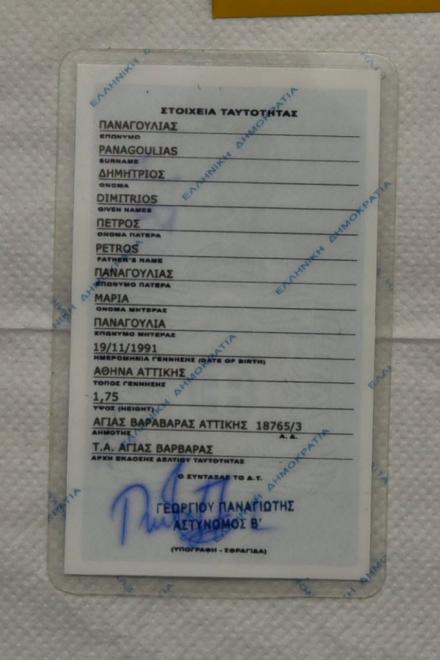 ΣΤΟΙΧΕΙΑ ΤΑΥΤΟΤΗΤΑΣ
ΠΑΝΑΓΟΥΛΙΑΣ
ΕΠΩΝΥΜΟ
PANAGOULIAS
SURNAME
ΔΗΜΗΤΡΙΟΣ
ΟΝΟΜΑ
DIMITRIOS
GIVEN NAMES
ΠΕΤΡΟΣ
ΟΝΟΜΑ ΠΑΤΕΡΑ
PETROS
FATHER'S NAME
ΠΑΝΑΓΟΥΛΙΑΣ
ΕΠΩΝΥΜΟ ΠΑΤΕΡΑ
ΜΑΡΙΑ
ΟΝΟΜΑ ΜΗΤΕΡΑΣ
ΠΑΝΑΓΟΥΛΙΑ
ΕΠΩΝΥΜΟ ΜΗΤΕΡΑΣ
19/11/1991
ΗΜΕΡΟΜΗΝΙΑ ΓΕΝΝΗΣΗΣ (DATE OF BIRTH)
ΑΘΗΝΑ ΑΤΤΙΚΗΣ
ΤΟΠΟΣ ΓΕΝΝΗΣΗΣ
1,75
ΥΨΟΣ (HEIGHT)
ΑΓΙΑΣ ΒΑΡΑΒΑΡΑΣ ΑΤΤΙΚΗΣ 18765/3
ΔΗΜΟΤΗΣ Α. Α.
Τ.Α. ΑΓΙΑΣ ΒΑΡΒΑΡΑΣ
ΑΡΧΗ ΕΚΔΟΣΗΣ ΔΕΛΤΙΟΥ ΤΑΥΤΟΤΗΤΑΣ
Ο ΣΥΝΤΑΞΑΣ ΤΟ Δ.Τ.
ΓΕΩΡΓΙΟΥ ΠΑΝΑΓΙΩΤΗΣ
ΑΣΤΥΝΟΜΟΣ Β'
(ΥΠΟΓΡΑΦΗ - ΣΦΡΑΓΙΔΑ)
ΕΛΛΗΝΙΚΗ ΔΗΜΟΚΡΑΤΙΑ
ΕΛΛΗΝΙΚΗ ΔΗΜΟΚΡΑΤΙΑ